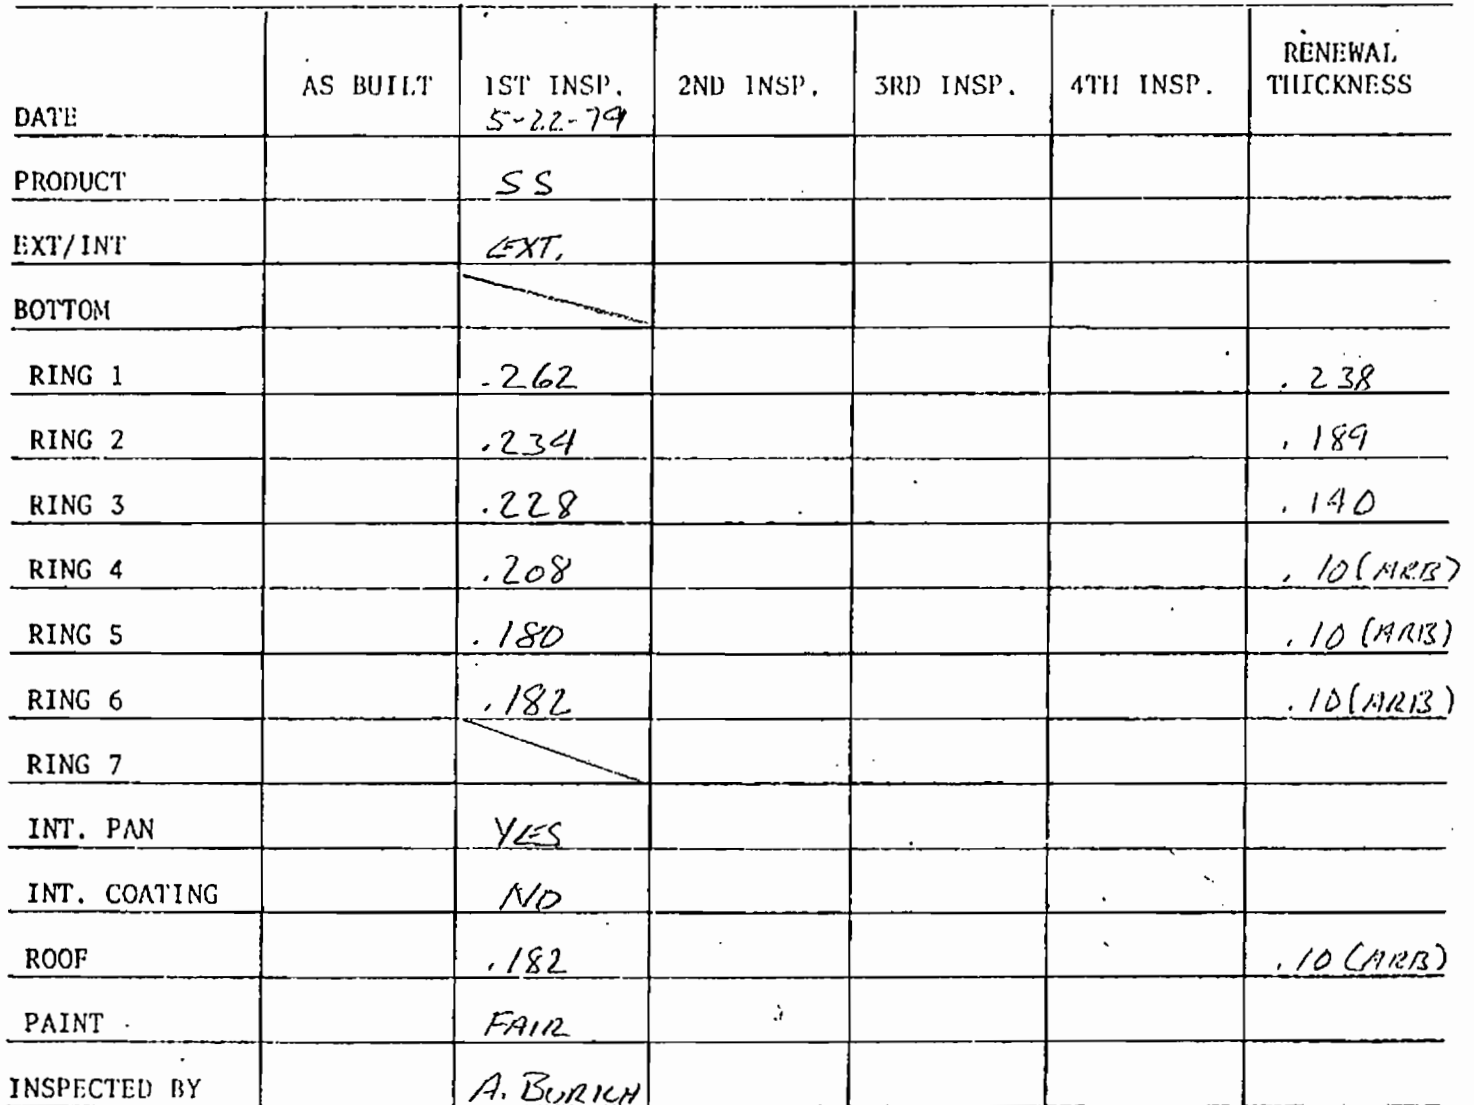 RENEWAL
AS BUILT 1ST INSP. 2ND INSP. 3RD INSP. 4TH INSP. THICKNESS
DATE 5-22-79
PRODUCT SS
EXT/INT EXT.
BOTTOM
RING 1 .262 .238
RING 2 .234 .189
RING 3 .228 .140
RING 4 .208 .10 (ARB)
RING 5 .180 .10 (ARB)
RING 6 .182 .10 (ARB)
RING 7
INT. PAN YES
INT. COATING NO
ROOF .182 .10 (ARB)
PAINT FAIR
INSPECTED BY A. BURICH